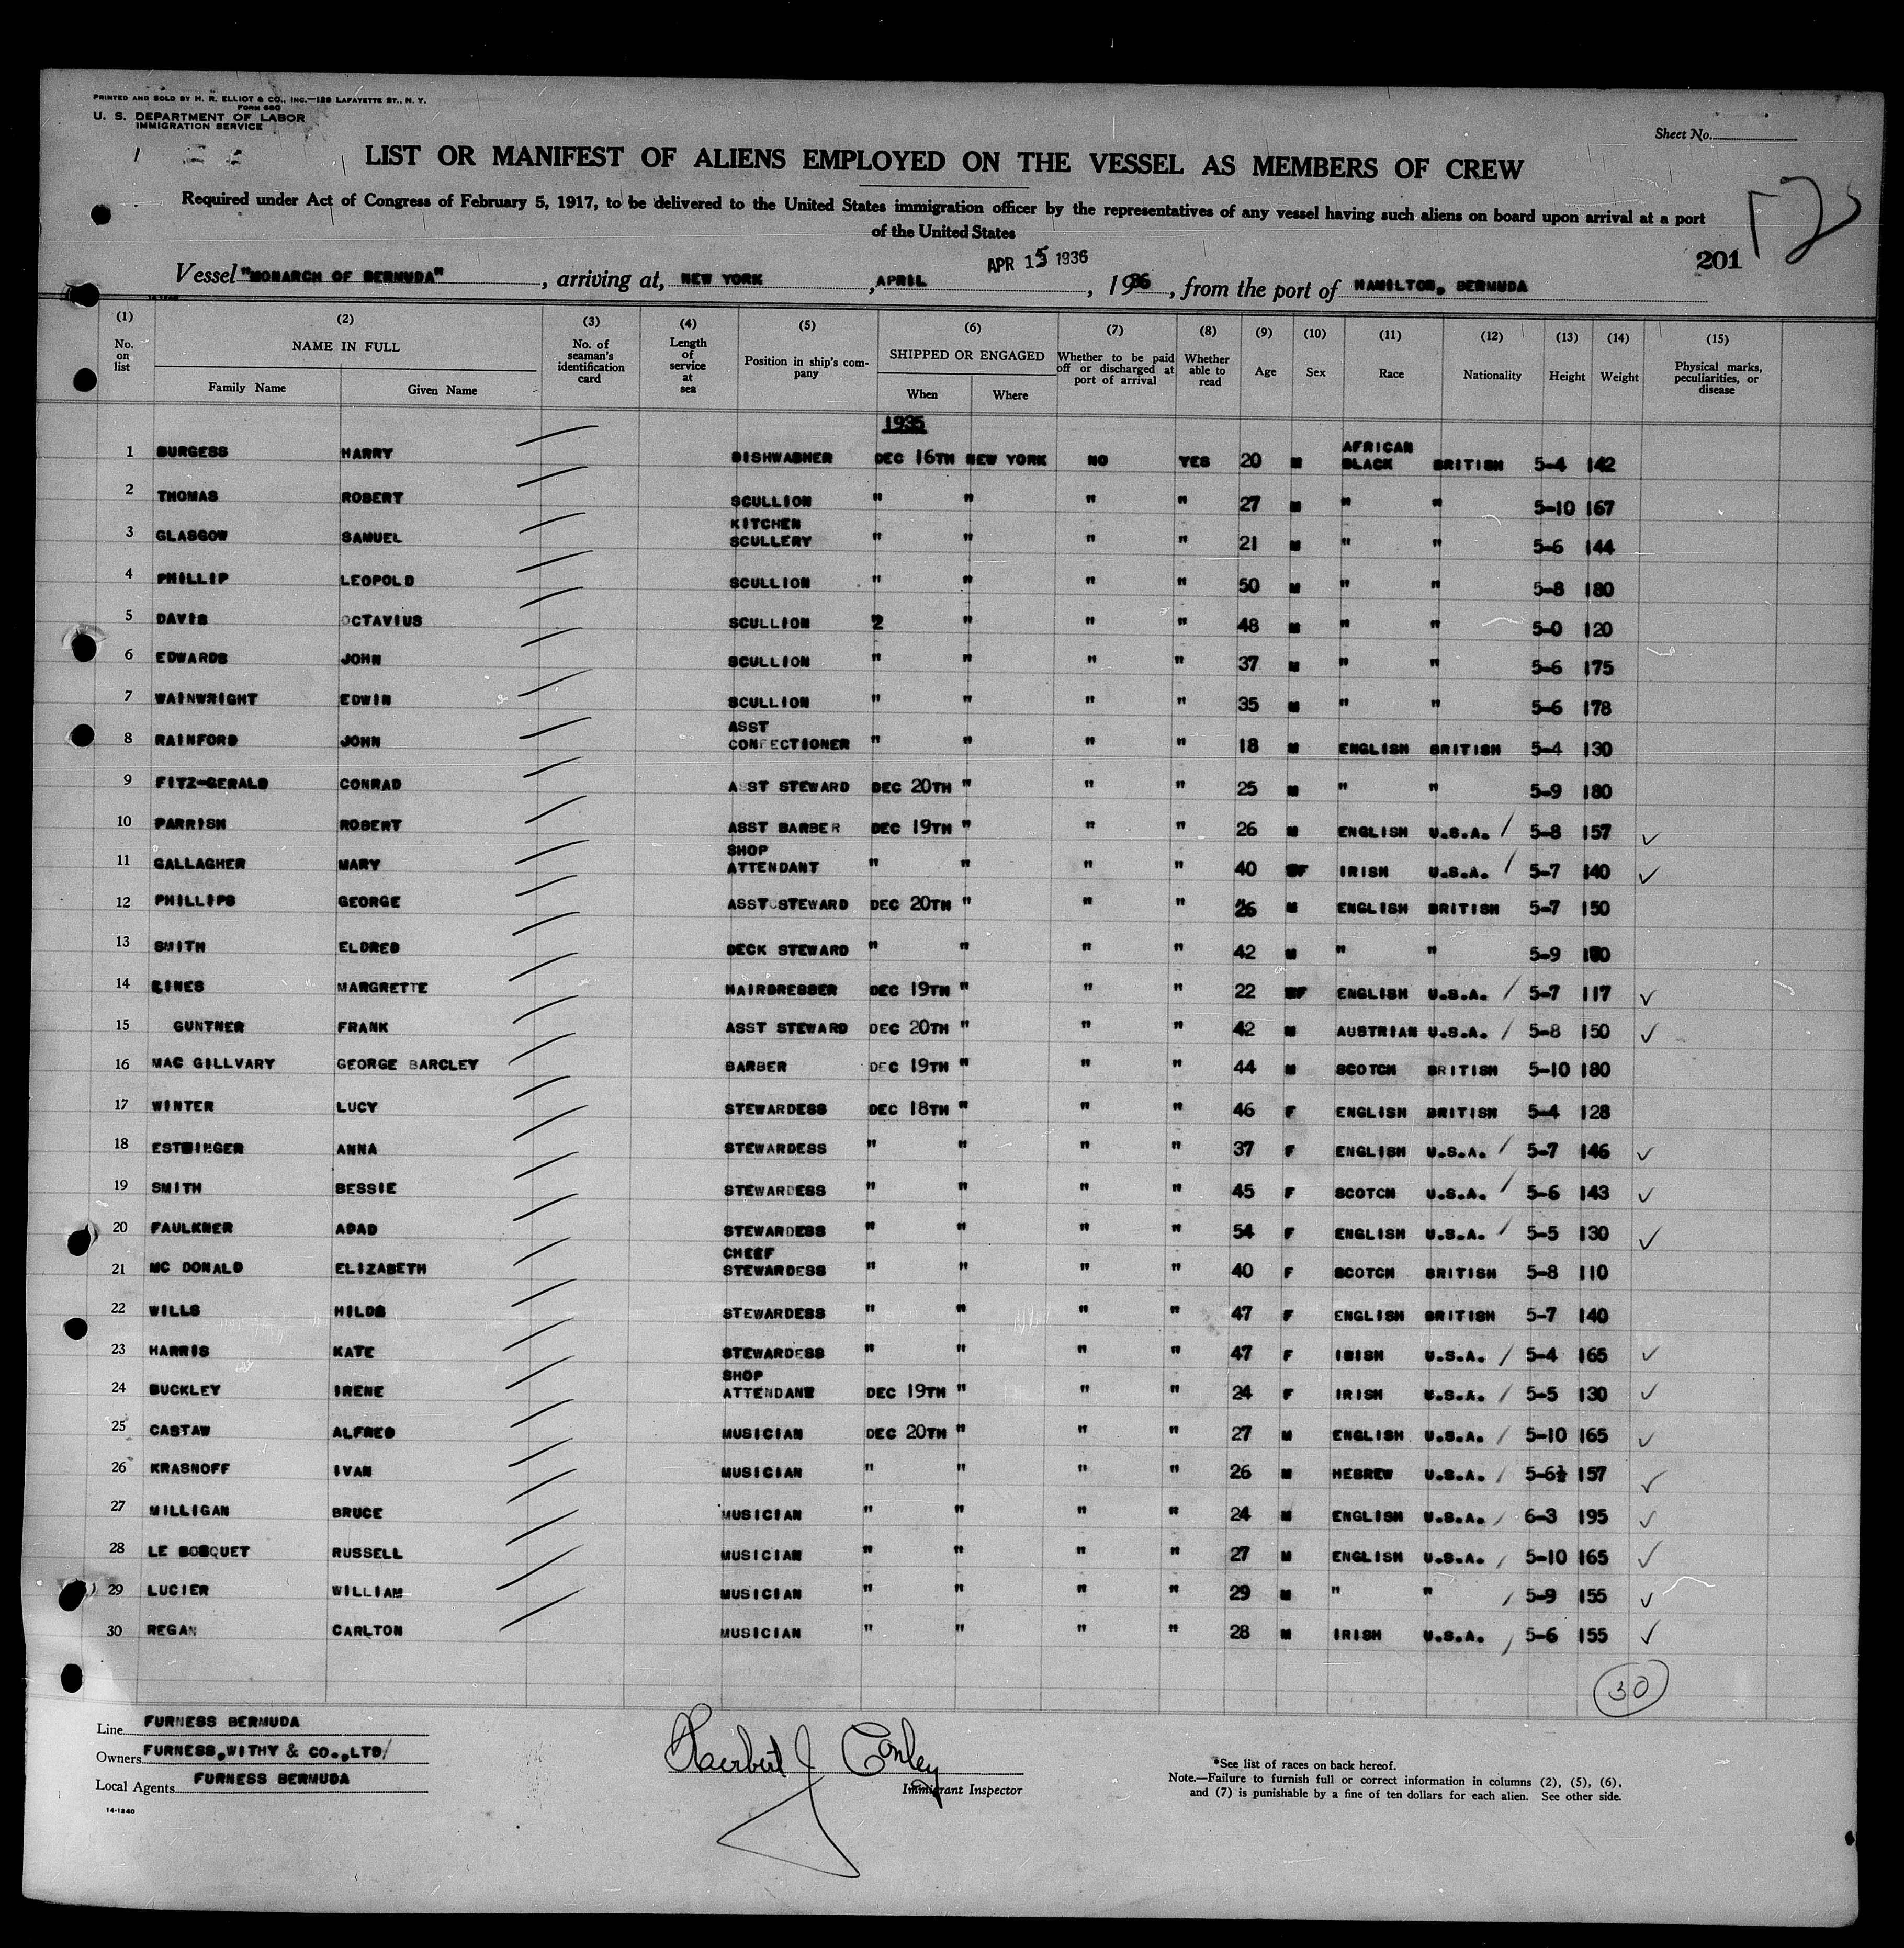 PRINTED AND SOLD BY H. R. ELLIOT & CO., INC.—129 LAFAYETTE ST., N. Y.
FORM 680
U. S. DEPARTMENT OF LABOR
IMMIGRATION SERVICE
Sheet No.
LIST OR MANIFEST OF ALIENS EMPLOYED ON THE VESSEL AS MEMBERS OF CREW
Required under Act of Congress of February 5, 1917, to be delivered to the United States immigration officer by the representatives of any vessel having such aliens on board upon arrival at a port
of the United States
APR 15 1936
201
Vessel "MONARCH OF BERMUDA", arriving at, NEW YORK, APRIL, 1936, from the port of HAMILTON, BERMUDA
(1) (2) (3) (4) (5) (6) (7) (8) (9) (10) (11) (12) (13) (14) (15)
No. on list NAME IN FULL Family Name Given Name No. of seaman's identification card Length of service at sea Position in ship's company SHIPPED OR ENGAGED When Where Whether to be paid off or discharged at port of arrival Whether able to read Age Sex Race Nationality Height Weight Physical marks, peculiarities, or disease
1935
1 BURGESS HARRY DISHWASHER DEC 16TH NEW YORK NO YES 20 M AFRICAN BLACK BRITISH 5-4 142
2 THOMAS ROBERT SCULLION " " " " 27 M " " 5-10 167
3 GLASGOW SAMUEL KITCHEN SCULLERY " " " " 21 M " " 5-6 144
4 PHILLIP LEOPOLD SCULLION " " " " 50 M " " 5-8 180
5 DAVIS OCTAVIUS SCULLION 2 " " " 48 M " " 5-0 120
6 EDWARDS JOHN SCULLION " " " " 37 M " " 5-6 175
7 WAINWRIGHT EDWIN SCULLION " " " " 35 M " " 5-6 178
8 RAINFORD JOHN ASST CONFECTIONER " " " " 18 M ENGLISH BRITISH 5-4 130
9 FITZ-GERALD CONRAD ASST STEWARD DEC 20TH " " " 25 M " " 5-9 180
10 PARRISH ROBERT ASST BARBER DEC 19TH " " " 26 M ENGLISH U.S.A. / 5-8 157 ✓
11 GALLAGHER MARY SHOP ATTENDANT " " " " 40 F IRISH U.S.A. / 5-7 140 ✓
12 PHILLIPS GEORGE ASST STEWARD DEC 20TH " " " 26 M ENGLISH BRITISH 5-7 150
13 SMITH ELDRED DECK STEWARD " " " " 42 M " " 5-9
14 MARGRETTE HAIRDRESSER DEC 19TH " " " 22 F ENGLISH U.S.A. / 5-7 117 ✓
15 GUNTNER FRANK ASST STEWARD DEC 20TH " " " 42 M AUSTRIAN U.S.A. / 5-8 150 ✓
16 MAC GILLVARY GEORGE BARCLEY BARBER DEC 19TH " " " 44 M SCOTCH BRITISH 5-10 180
17 WINTER LUCY STEWARDESS DEC 18TH " " " 46 F ENGLISH BRITISH 5-4 128
18 ANNA STEWARDESS " " " " 37 F ENGLISH U.S.A. / 5-7 146 ✓
19 SMITH BESSIE STEWARDESS " " " " 45 F SCOTCH U.S.A. / 5-6 143 ✓
20 FAULKNER ADAD STEWARDESS " " " " 54 F ENGLISH U.S.A. / 5-5 130 ✓
21 MC DONALD ELIZABETH CHEEF STEWARDESS " " " " 40 F SCOTCH BRITISH 5-8 110
22 WILLS STEWARDESS " " " " 47 F ENGLISH BRITISH 5-7 140
23 HARRIS KATE STEWARDESS " " " " 47 F IRISH U.S.A. / 5-4 165 ✓
24 BUCKLEY IRENE SHOP ATTENDANT DEC 19TH " " " 24 F IRISH U.S.A. / 5-5 130 ✓
25 CASTAW ALFRED MUSICIAN DEC 20TH " " " 27 M ENGLISH U.S.A. / 5-10 165 ✓
26 KRASNOFF IVAN MUSICIAN " " " " 26 M HEBREW U.S.A. / 5-6½ 157 ✓
27 MILLIGAN BRUCE MUSICIAN " " " " 24 M ENGLISH U.S.A. / 6-3 195 ✓
28 LE BOSQUET RUSSELL MUSICIAN " " " " 27 M ENGLISH U.S.A. / 5-10 165 ✓
29 LUCIER WILLIAM MUSICIAN " " " " 29 M " " / 5-9 155 ✓
30 REGAN CARLTON MUSICIAN " " " " 28 M IRISH U.S.A. / 5-6 155 ✓
30
Line FURNESS BERMUDA
Owners FURNESS, WITHY & CO., LTD/
Local Agents FURNESS BERMUDA
14-1240
Herbert J Conley
Immigrant Inspector
*See list of races on back hereof.
Note.—Failure to furnish full or correct information in columns (2), (5), (6),
and (7) is punishable by a fine of ten dollars for each alien. See other side.